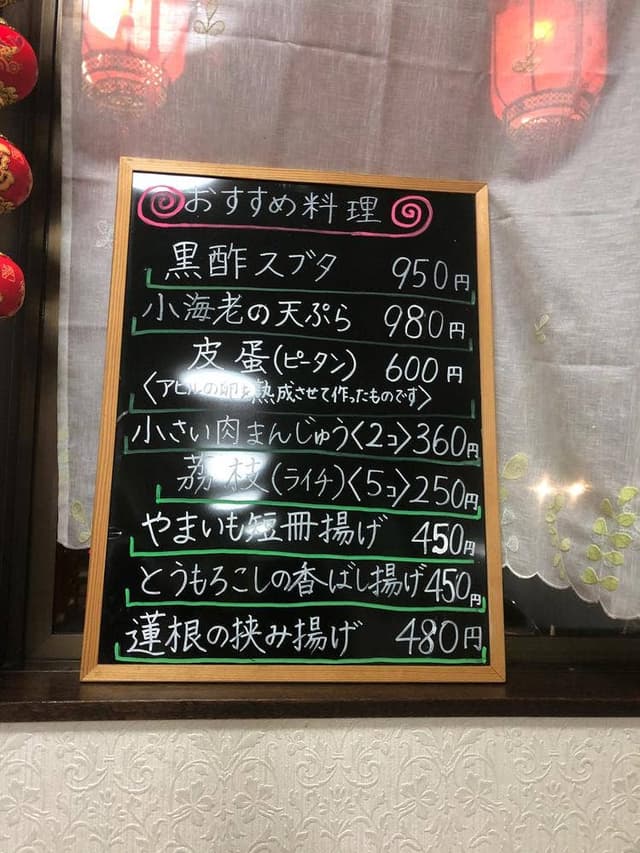 おすすめ料理
黒酢スブタ 950円
小海老の天ぷら 980円
皮蛋(ピータン) 600円
〈アヒルの卵を熟成させて作ったものです〉
小さい肉まんじゅう〈2コ〉360円
荔枝(ライチ)〈5コ〉250円
やまいも短冊揚げ 450円
とうもろこしの香ばし揚げ 450円
蓮根の挟み揚げ 480円